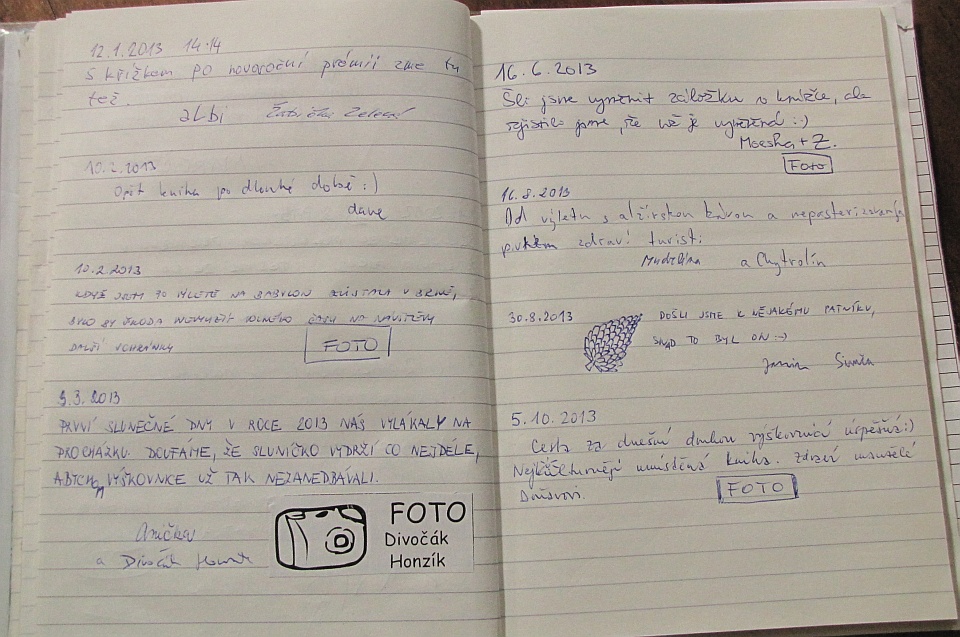 12.1.2013 14:14
S křížkem po novoroční prémii sme tu
též.
albi
10.2.2013
Opět kniha po dlouhé době :)
dave
10.2.2013
KDYŽ JSEM PO VÝLETĚ NA BABYLON V BRNĚ,
BYLO BY ŠKODA NEVYUŽÍT VOLNÉHO ČASU NA NÁVŠTĚVU
DALŠÍ VCHRÁNKY
FOTO
9.3.2013
PRVNÍ SLUNEČNÉ DNY V ROCE 2013 NÁS VYLÁKALY NA
PROCHÁZKU. DOUFÁME, ŽE SLUNÍČKO VYDRŽÍ CO NEJDÉLE,
ABYCHOM VÝŠKOVNICE UŽ TAK NEZANEDBÁVALI.
Anička
a Divočák Honzík
FOTO
Divočák
Honzík
16.6.2013
Šli jsme vyměnit záložku v knížce, ale
zjistilo jsme, že už je vyměněná :)
Moesha + Z.
FOTO
16.8.2013
Od výletu s alžírskou kávou a nepasterizovaným
pivkem zdraví turisti
a Chytrolín
30.8.2013
DOŠLI JSME K NĚJAKÉMU PATNÍKU,
SNAD TO BYL ON :-)
5.10.2013
Cesta za dnešní druhou výškovnicí úspěšná :)
Nejkulturněji umístěná kniha. Zdraví manželé
FOTO